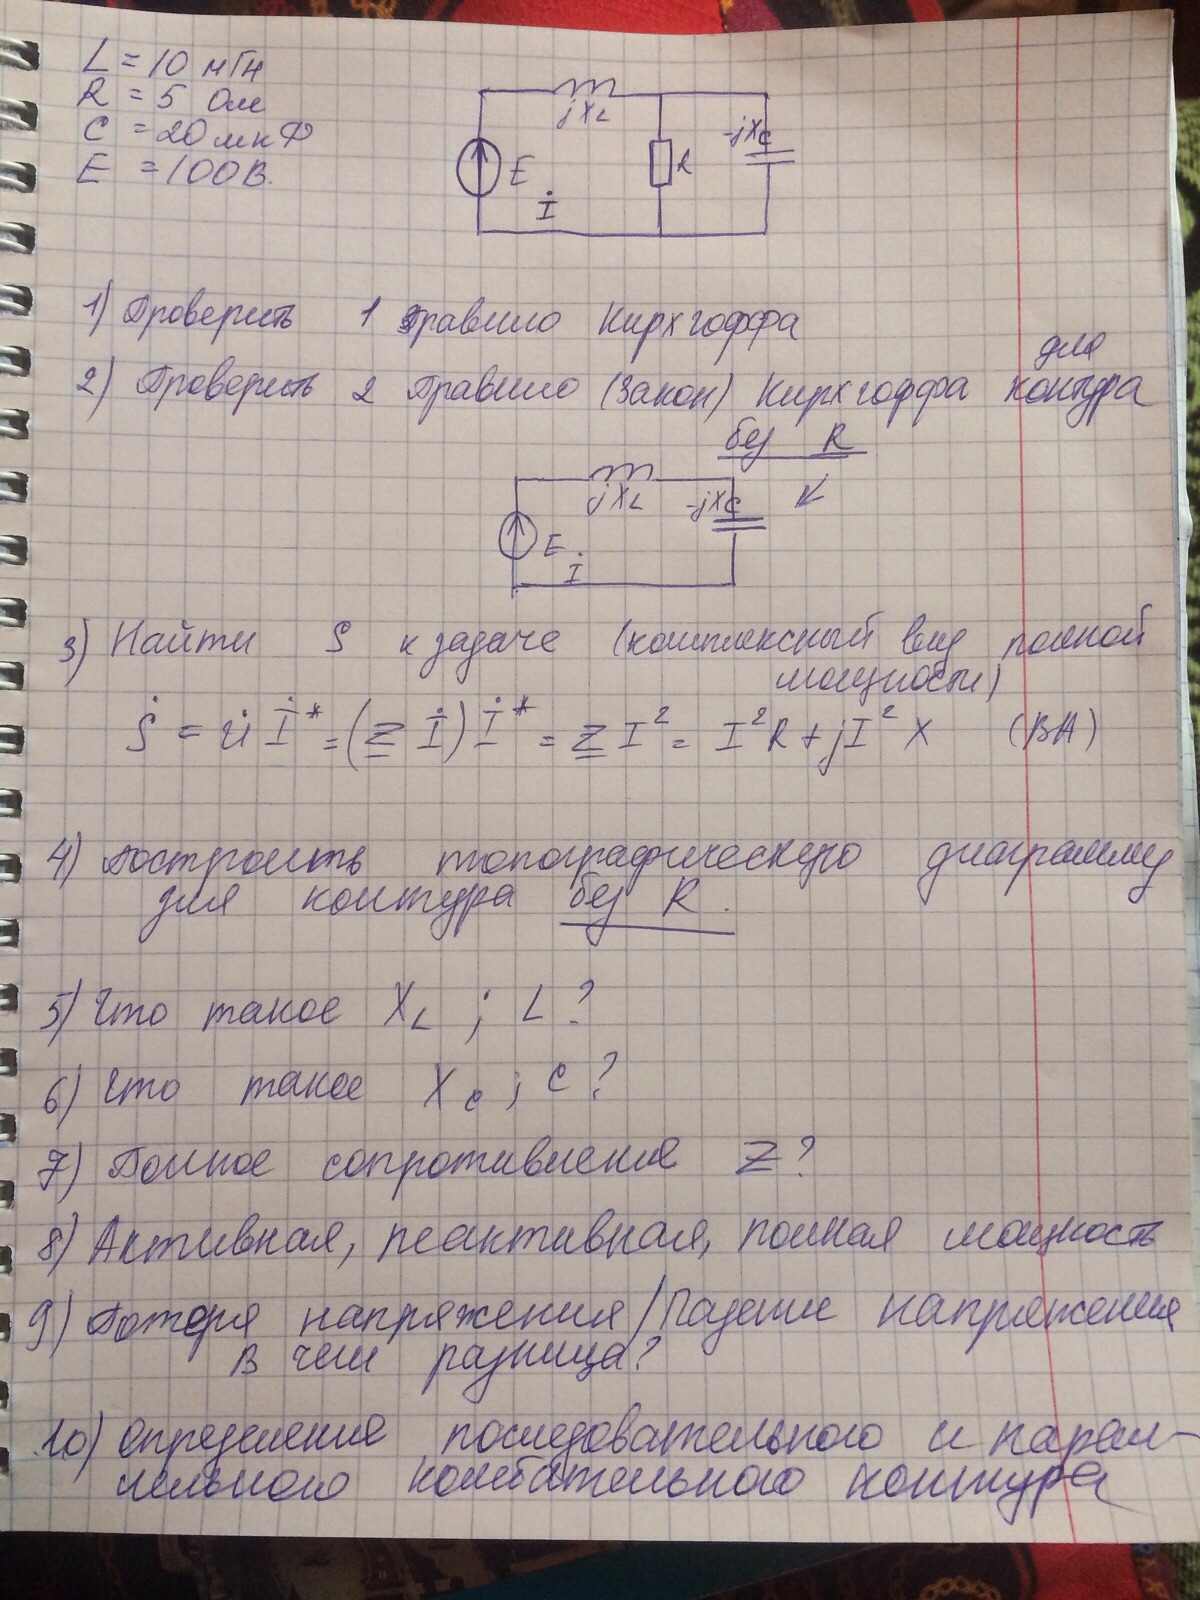 L = 10 мГн
R = 5 Ом
C = 20 мкФ
E = 100 В.
jXL
-jXC
E
R
İ
1) Проверить 1 правило Кирхгоффа
2) Проверить 2 Правило (Закон) Кирхгоффа для контура
без R
jXL
-jXC
E
İ
3) Найти S к задаче (комплексный вид полной
мощности)
Ṡ = U̇ İ* = (Z İ) İ* = Z I² = I²R + jI² X (ВА)
4) Построить топографическую диаграмму
для контура без R.
5) Что такое XL ; L ?
6) Что такое Xc ; C ?
7) Полное сопротивление Z ?
8) Активная, реактивная, полная мощность
9) Потеря напряжения / Падение напряжения
В чем разница?
10) Определения последовательного и парал-
лельного колебательного контура